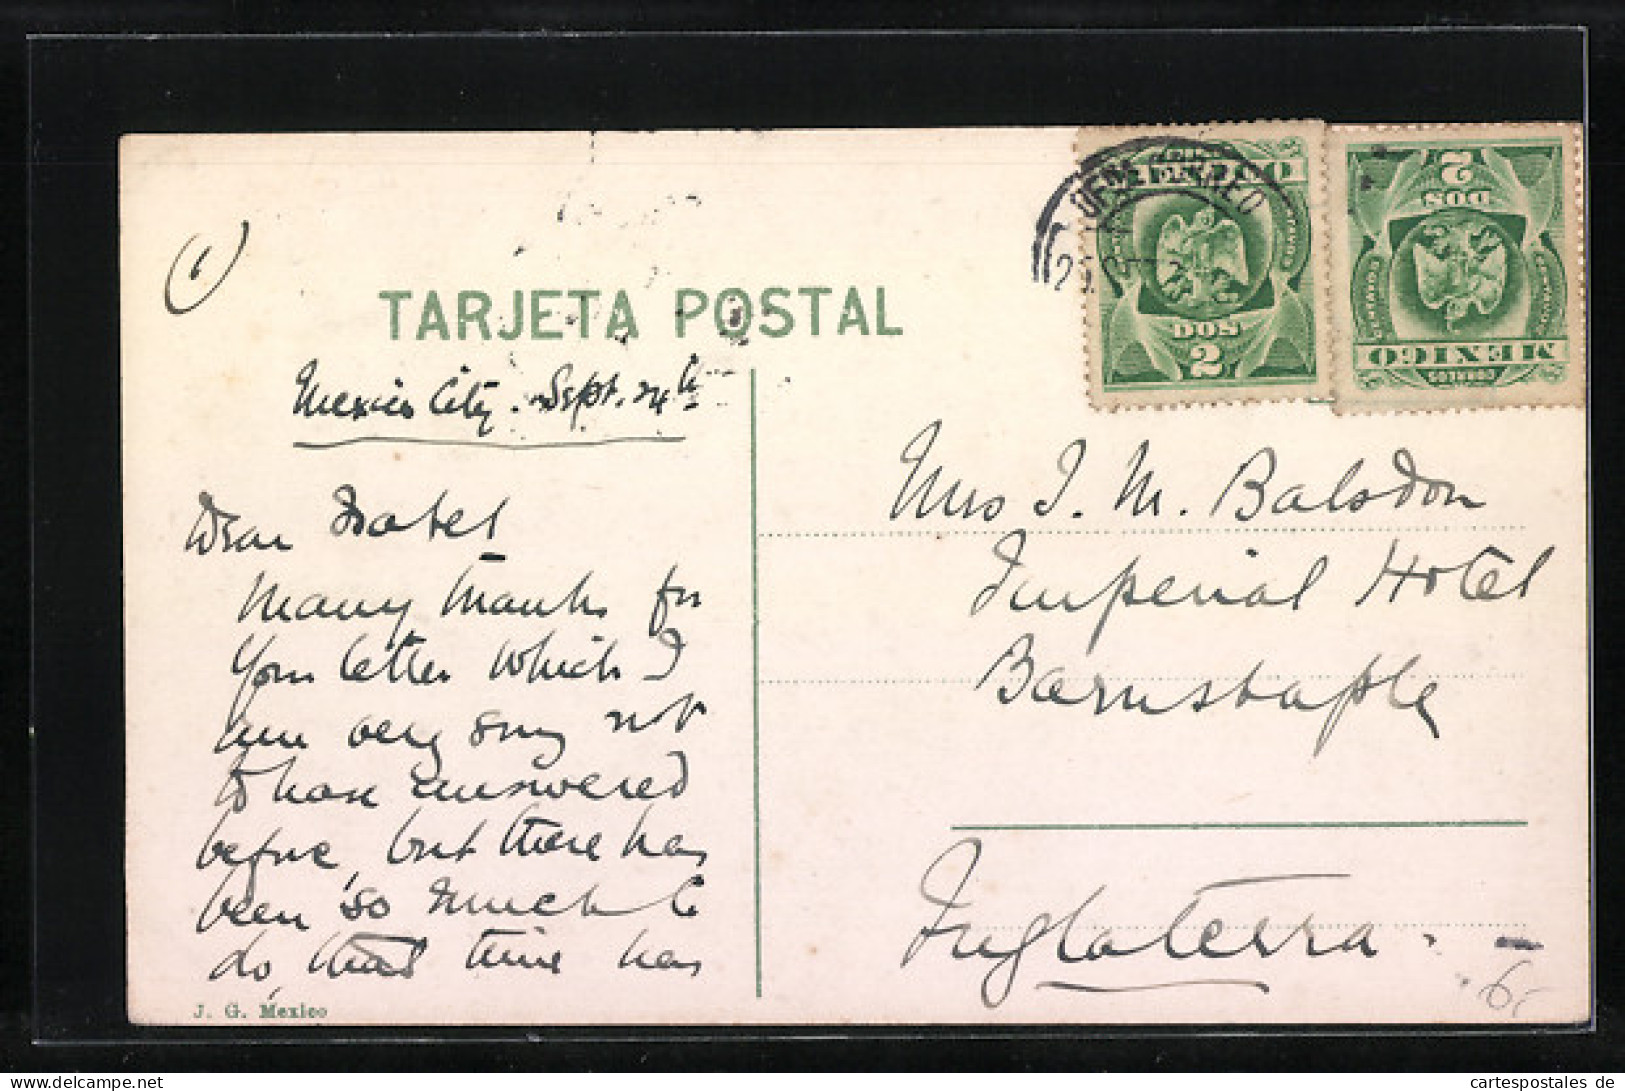 (1)
TARJETA POSTAL
Mexico City. Sept. 24th
Dear Isabel
Many thanks for
your letter which I
am very sorry not
to have answered
before, but there has
been so much to
do, that time has
J. G. Mexico
OFNA CORREO
MEXICO
DOS
2
CORREOS
MEXICO
CENTAVOS
CENTAVOS
DOS
2
Mrs J. M. Balsdon
Imperial Hotel
Barnstaple
Inglaterra. -
6-
cartespostales de